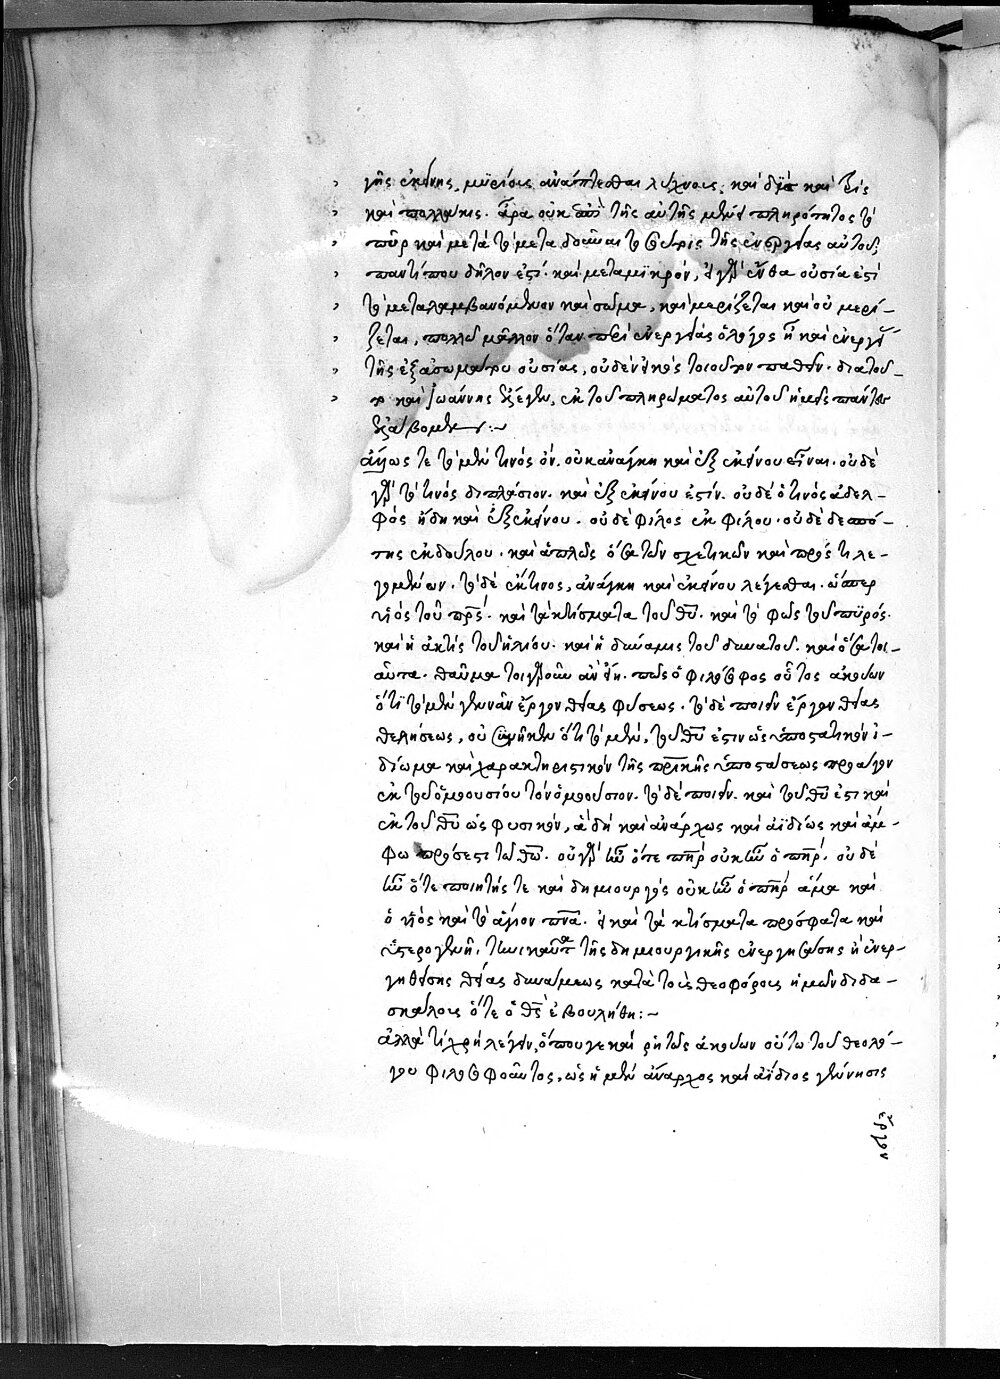 γῆς ἐκείνης, μυρίους ἀνάπτεσθαι λύχνους, καὶ δὶς καὶ τρὶς
καὶ πολλάκις. ἆρα οὐκ ἐπὶ τῆς αὐτῆς μένει πληρότητος τὸ
πῦρ καὶ μετὰ τὸ μεταδοῦναι τοσούτοις τῆς ἐνεργείας αὐτοῦ;
παντί που δῆλόν ἐστι. καὶ μετὰ μικρόν, εἰ γὰρ ἔνθα οὐσία ἐστὶ
τὸ μεταλαμβανόμενον καὶ σῶμα, καὶ μερίζεται καὶ οὐ μερί-
ζεται, πολλῷ μᾶλλον ὅταν περὶ ἐνεργείας ὁ λόγος ᾖ καὶ ἐνεργείας
τῆς ἐξ ἀσωμάτου οὐσίας, οὐδὲν εἰκὸς τοιοῦτον παθεῖν. διὰ τοῦ-
το καὶ Ἰωάννης ἔλεγεν, ἐκ τοῦ πληρώματος αὐτοῦ ἡμεῖς πάντες
ἐλάβομεν:~
ἄλλως τε τὸ μὲν τινὸς ὂν, οὐκ ἀνάγκη καὶ ἐξ ἐκείνου εἶναι. οὐδὲ
γὰρ τὸ τινὸς διπλάσιον, καὶ ἐξ ἐκείνου ἐστίν. οὐδὲ ὁ τινὸς ἀδελ-
φὸς ἤδη καὶ ἐξ ἐκείνου. οὐδὲ φίλος ἐκ φίλου. οὐδὲ δεσπό-
της ἐκ δούλου. καὶ ἁπλῶς ὅσα τῶν σχετικῶν καὶ πρός τι λε-
γομένων. τὸ δὲ ἔκ τινος, ἀνάγκη καὶ ἐκείνου λέγεσθαι. ὥσπερ
υἱὸς τοῦ πρς. καὶ τὰ κτίσματα τοῦ θυ. καὶ τὸ φῶς τοῦ πυρός.
καὶ ἡ ἀκτὶς τοῦ ἡλίου. καὶ ἡ δύναμις τοῦ δυνατοῦ. καὶ ὅσα τοι-
αῦτα. θαῦμα τοιγαροῦν ἂν εἴη. πῶς ὁ φιλόσοφος οὗτος ἀκούων
ὅτι τὸ μὲν γεννᾶν ἔργον θείας φύσεως. τὸ δὲ ποιεῖν ἔργον θείας
θελήσεως, οὐ συνῆκεν ὅτι τὸ μὲν, τοῦ θυ ἐστιν ὡς ὑποστατικὸν ἰ-
δίωμα καὶ χαρακτηριστικὸν τῆς πρικῆς ὑποστάσεως προάγον
ἐκ τοῦ ὁμοουσίου τὸν ὁμοούσιον. τὸ δὲ ποιεῖν. καὶ τοῦ θυ ἐστι καὶ
ἐκ τοῦ θυ ὡς φυσικόν, ἃ δὴ καὶ ἀνάρχως καὶ ἀϊδίως καὶ ἄμ-
φω πρόσεστι τῷ θω. οὐ γὰρ ἦν ὅτε πηρ οὐκ ἦν ὁ πηρ. οὐδὲ
ἦν ὅτε ποιητής τε καὶ δημιουργὸς οὐκ ἦν ὁ πηρ ἅμα καὶ
ὁ υἱὸς καὶ τὸ ἅγιον πνα. εἰ καὶ τὰ κτίσματα πρόσφατα καὶ
ὑστερογενῆ, τηνικαῦτα τῆς δημιουργικῆς ἐνεργησάσης ἢ ἐνερ-
γηθείσης θείας δυνάμεως κατὰ τοὺς θεοφόρους ἡμῶν διδα-
σκάλους ὅτε ὁ θς ἐβουλήθη:~
ἀλλὰ τί χρὴ λέγειν, ὅπου γε καὶ ῥητῶς ἀκούων οὕτω τοῦ θεολό-
γου φιλοσοφοῦντος, ὡς ἡ μὲν ἄναρχος καὶ ἀΐδιος γέννησις